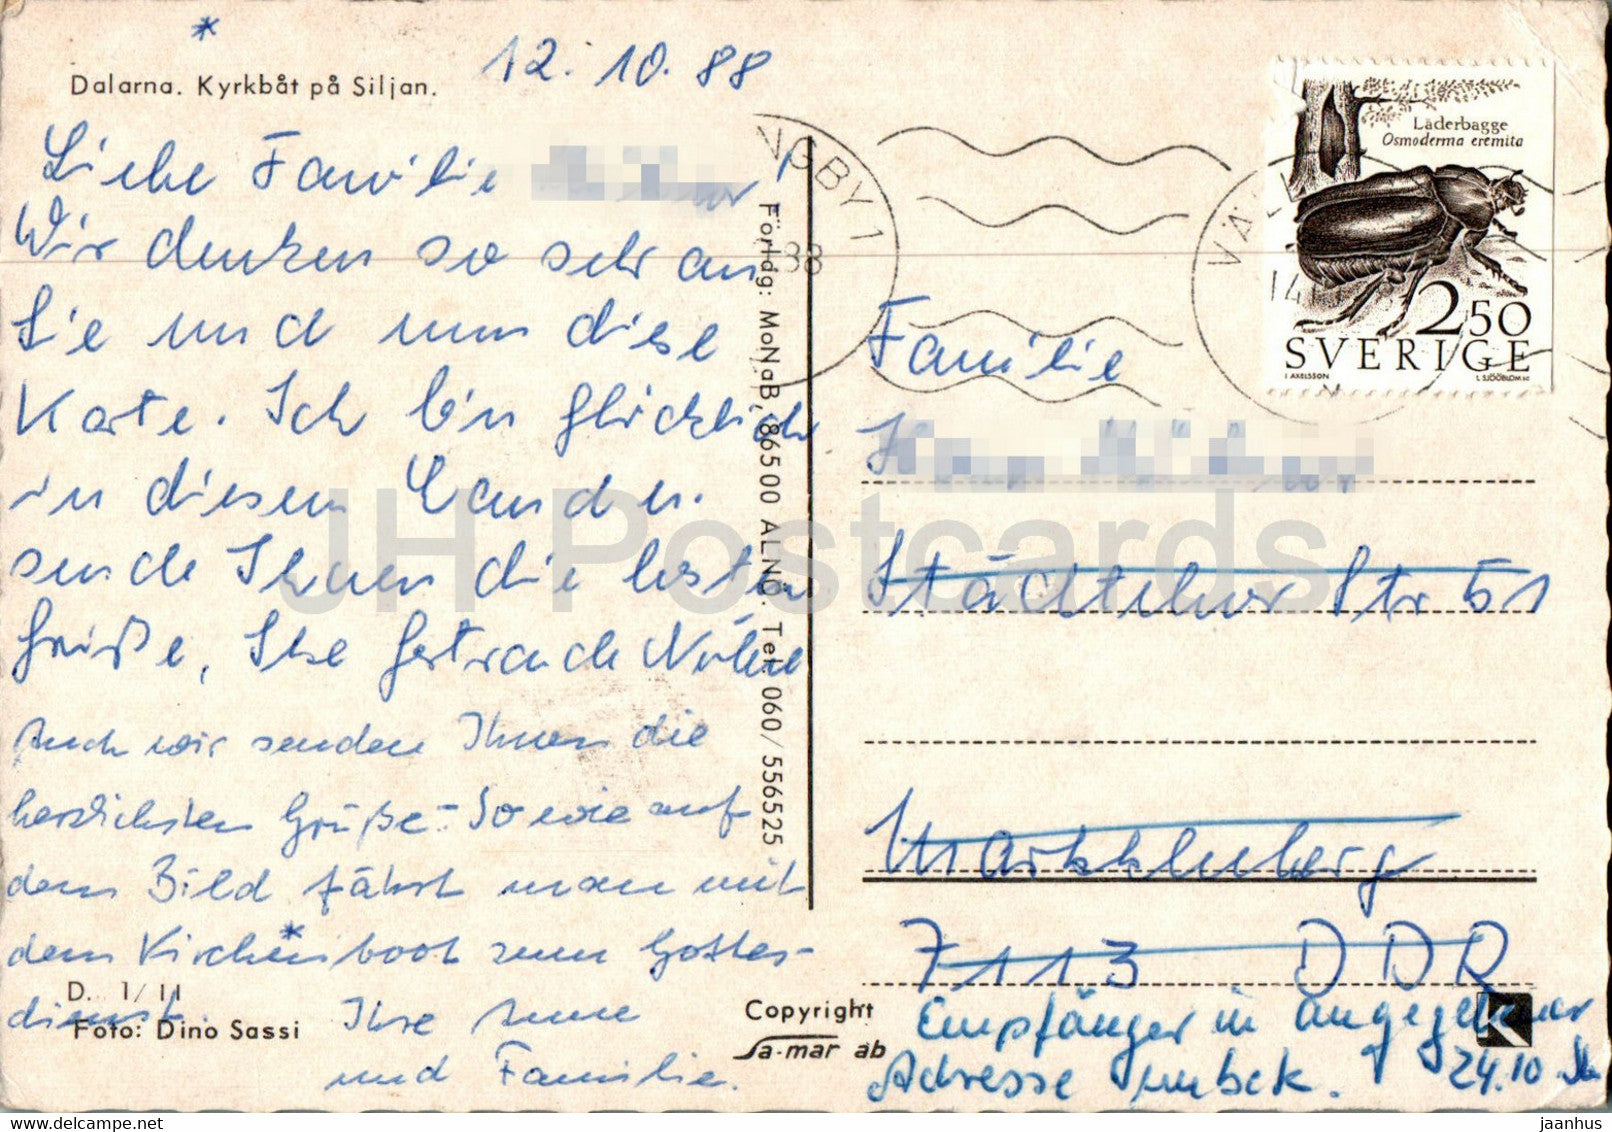 *
12. 10. 88
Dalarna. Kyrkbåt på Siljan.
Liebe Familie
Wir denken so sehr an
Sie und nun diese
Karte. Ich bin glücklich
in diesem Lande u.
sende Ihnen die besten
Grüße, Ihre Gertraude
Auch wir senden Ihnen die
herzlichsten Grüße. So wie auf
dem Bild fährt man mit
dem Kirchenboot zum Gottes-
dienst. Ihre Anne
und Familie.
D. 1/11
Foto: Dino Sassi
Förlag: MoNaB, 86500 ALNÖ. Tel. 060/556525
Copyright
Sa-mar ab
NGBY 1
88
VÄLL
14
Läderbagge
Osmoderma eremita
2.50
SVERIGE
I. AXELSSON L. SJÖÖBLOM SC.
Familie
Städtelner Str 51
Markkleeberg
7113 DDR
Empfänger in angegebener
Adresse unbek.
24.10
K
JH Postcards
www.delcampe.net
jaanhus